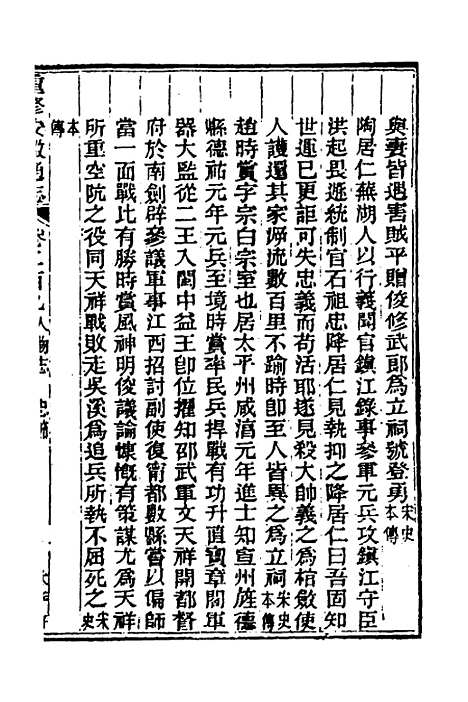 與妻皆遇害賊平贈俊修武郎爲立祠號登勇宋史本傳
陶居仁蕪湖人以行義聞官鎭江錄事參軍元兵攻鎭江守臣
洪起畏遁統制官石祖忠降居仁見執抑之降居仁曰吾固知
世運已更詎可失忠義而苟活耶遂見殺大帥義之爲棺斂使
人護還其家溯流數百里不踰時卽至人皆異之爲立祠宋史本傳
趙時賞字宗白宗室也居太平州咸淳元年進士知宣州旌德
縣德祐元年元兵至境時賞率民兵捍戰有功升直寶章閣軍
器大監從二王入閩中益王卽位擢知邵武軍文天祥開都督
府於南劍辟參議軍事江西招討副使復甯都數縣嘗以偏師
當一面戰比有勝時賞風神明俊議論慷慨有策謀尤爲天祥
所重空阬之役同天祥戰敗走吳溪爲追兵所執不屈死之宋史
本傳
重修安徽通志 卷二百 人物志 忠節